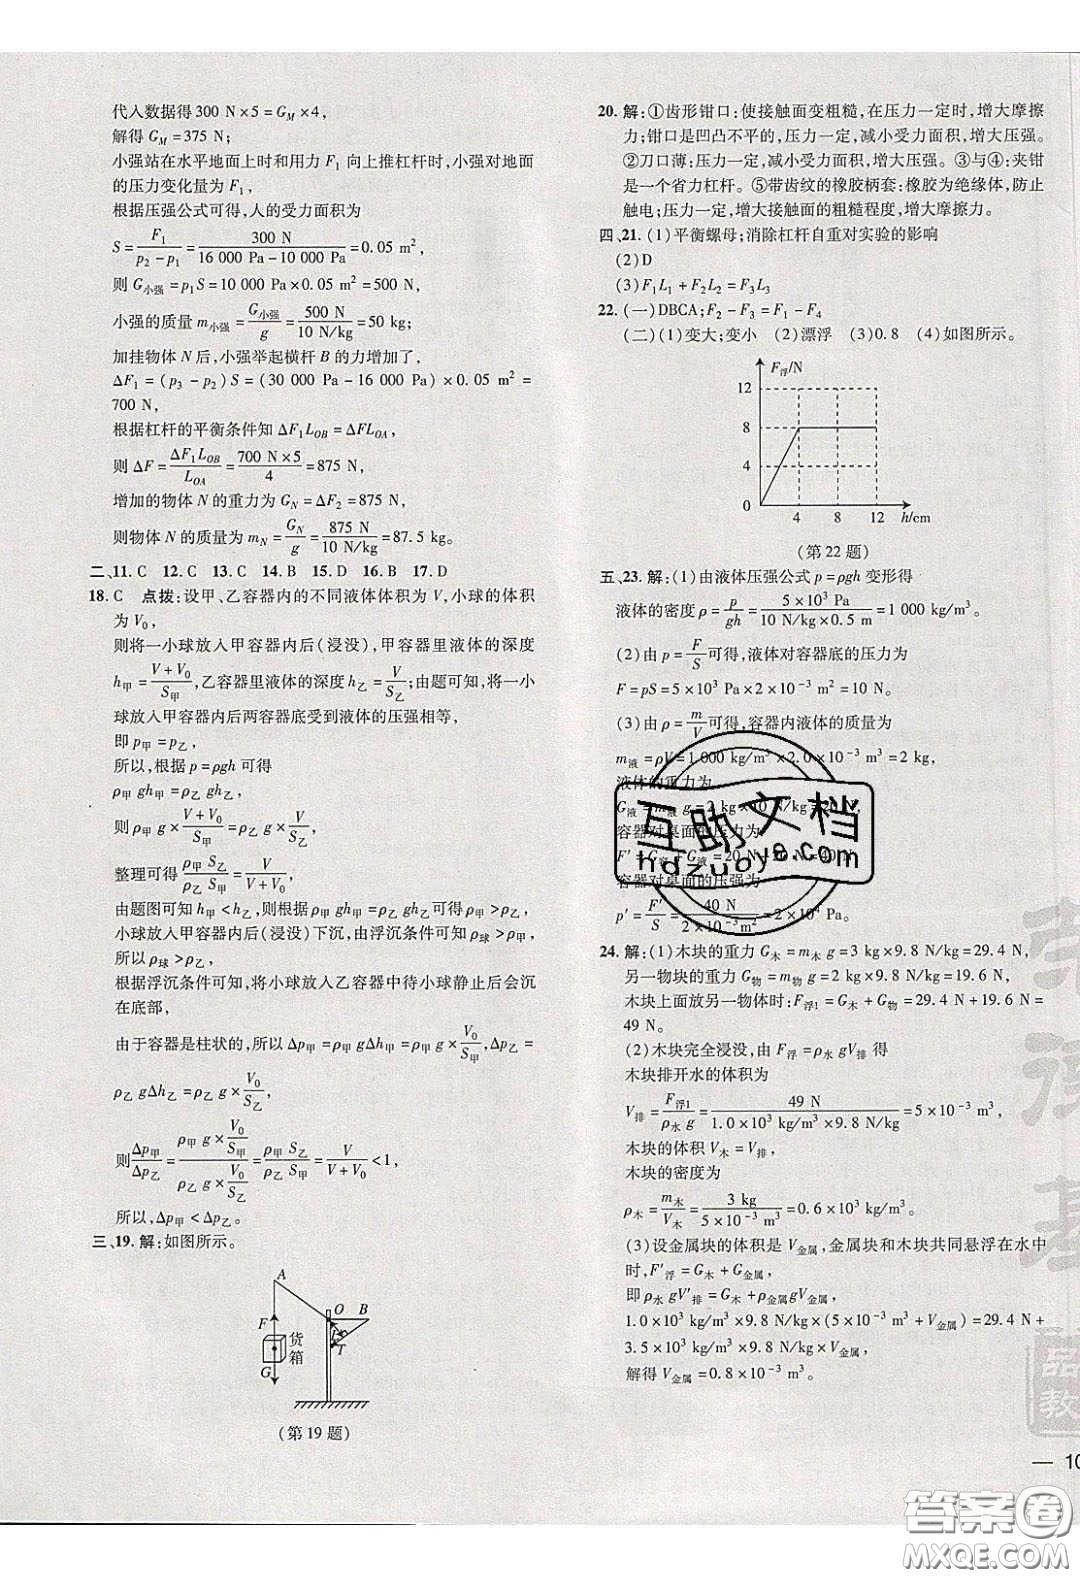 代入数据得 300 N×5=G_M×4,
解得 G_M=375 N;
小强站在水平地面上时和用力 F₁ 向上推杠杆时,小强对地面
的压力变化量为 F₁,
根据压强公式可得,人的受力面积为
S=F₁/(p₂-p₁)=300 N/(16 000 Pa-10 000 Pa)=0.05 m²,
则 G小强=p₁S=10 000 Pa×0.05 m²=500 N,
小强的质量 m小强=G小强/g=500 N/(10 N/kg)=50 kg;
加挂物体 N 后,小强举起横杆 B 的力增加了,
ΔF₁=(p₃-p₂)S=(30 000 Pa-16 000 Pa)×0.05 m²=
700 N,
根据杠杆的平衡条件知 ΔF₁L_OB=ΔFL_OA,
则 ΔF=ΔF₁L_OB/L_OA=700 N×5/4=875 N,
增加的物体 N 的重力为 G_N=ΔF₂=875 N,
则物体 N 的质量为 m_N=G_N/g=875 N/(10 N/kg)=87.5 kg。
二、11. C 12. C 13. C 14. B 15. D 16. B 17. D
18. C 点拨:设甲、乙容器内的不同液体体积为 V,小球的体积
为 V₀,
则将一小球放入甲容器内后(浸没),甲容器里液体的深度
h甲=(V+V₀)/S甲,乙容器里液体的深度 h乙=V/S乙;由题可知,将一小
球放入甲容器内后两容器底受到液体的压强相等,
即 p甲=p乙,
所以,根据 p=ρgh 可得
ρ甲gh甲=ρ乙gh乙,
则 ρ甲g×(V+V₀)/S甲=ρ乙g×V/S乙,
整理可得 ρ甲S乙/ρ乙S甲=V/(V+V₀),
由题图可知 h甲<h乙,则根据 ρ甲gh甲=ρ乙gh乙可得 ρ甲>ρ乙,
小球放入甲容器内后(浸没)下沉,由浮沉条件可知 ρ球>ρ甲,
所以 ρ球>ρ乙,
根据浮沉条件可知,将小球放入乙容器中待小球静止后会沉
在底部,
由于容器是柱状的,所以 Δp甲=ρ甲gΔh甲=ρ甲g×V₀/S甲,Δp乙=
ρ乙gΔh乙=ρ乙g×V₀/S乙,
则Δp甲/Δp乙=(ρ甲g×V₀/S甲)/(ρ乙g×V₀/S乙)=ρ甲S乙/ρ乙S甲=V/(V+V₀)<1,
所以,Δp甲<Δp乙。
三、19. 解:如图所示。
A
O B
F
货
箱
T
G
(第 19 题)
20. 解:①齿形钳口:使接触面变粗糙,在压力一定时,增大摩擦
力;钳口是凹凸不平的,压力一定,减小受力面积,增大压强。
②刀口薄;压力一定,减小受力面积,增大压强。③与④:夹钳
是一个省力杠杆。⑤带齿纹的橡胶柄套:橡胶为绝缘体,防止
触电;压力一定,增大接触面的粗糙程度,增大摩擦力。
四、21. (1)平衡螺母;消除杠杆自重对实验的影响
(2)D
(3)F₁L₁+F₂L₂=F₃L₃
22. (一)DBCA;F₂-F₃=F₁-F₄
(二)(1)变大;变小 (2)漂浮 (3)0.8 (4)如图所示。
F浮/N
12
8
4
0
4 8 12 h/cm
(第 22 题)
五、23. 解:(1)由液体压强公式 p=ρgh 变形得
液体的密度 ρ=p/gh=5×10³ Pa/(10 N/kg×0.5 m)=1 000 kg/m³。
(2)由 p=F/S可得,液体对容器底的压力为
F=pS=5×10³ Pa×2×10⁻³ m²=10 N。
(3)由 ρ=m/V可得,容器内液体的质量为
m液=ρV=1 000 kg/m³×2.0×10⁻³ m³=2 kg,
液体的重力为
G液=m液g=2 kg×10 N/kg=20 N,
容器对桌面的压力为
F'=G容+G液=20 N+20 N=40 N,
容器对桌面的压强为
p'=F'/S=40 N/(2×10⁻³ m²)=2×10⁴ Pa。
24. 解:(1)木块的重力 G木=m木g=3 kg×9.8 N/kg=29.4 N,
另一物块的重力 G物=m物g=2 kg×9.8 N/kg=19.6 N,
木块上面放另一物体时:F浮1=G木+G物=29.4 N+19.6 N=
49 N。
(2)木块完全浸没,由 F浮=ρ水gV排 得
木块排开水的体积为
V排=F浮1/ρ水g=49 N/(1.0×10³ kg/m³×9.8 N/kg)=5×10⁻³ m³,
木块的体积 V木=V排,
木块的密度为
ρ木=m木/V木=3 kg/(5×10⁻³ m³)=0.6×10³ kg/m³。
(3)设金属块的体积是 V金属,金属块和木块共同悬浮在水中
时,F'浮=G木+G金属,
即 ρ水gV'排=G木+ρ金属gV金属,
1.0×10³ kg/m³×9.8 N/kg×(5×10⁻³ m³+V金属)=29.4 N+
3.5×10³ kg/m³×9.8 N/kg×V金属,
解得 V金属=0.8×10⁻³ m³。
互助文档
hdzuoye.com
基
品
教
— 10
答案卷
MXQE.COM